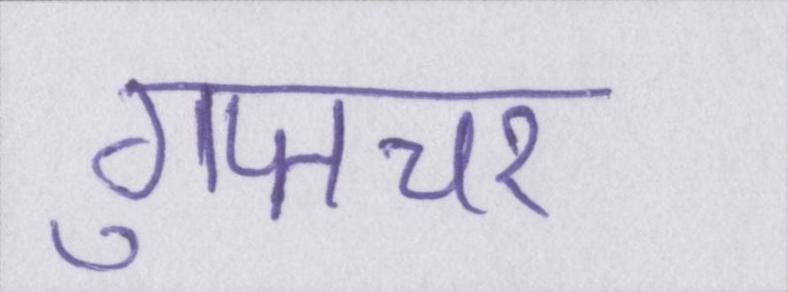 गुप्तचर